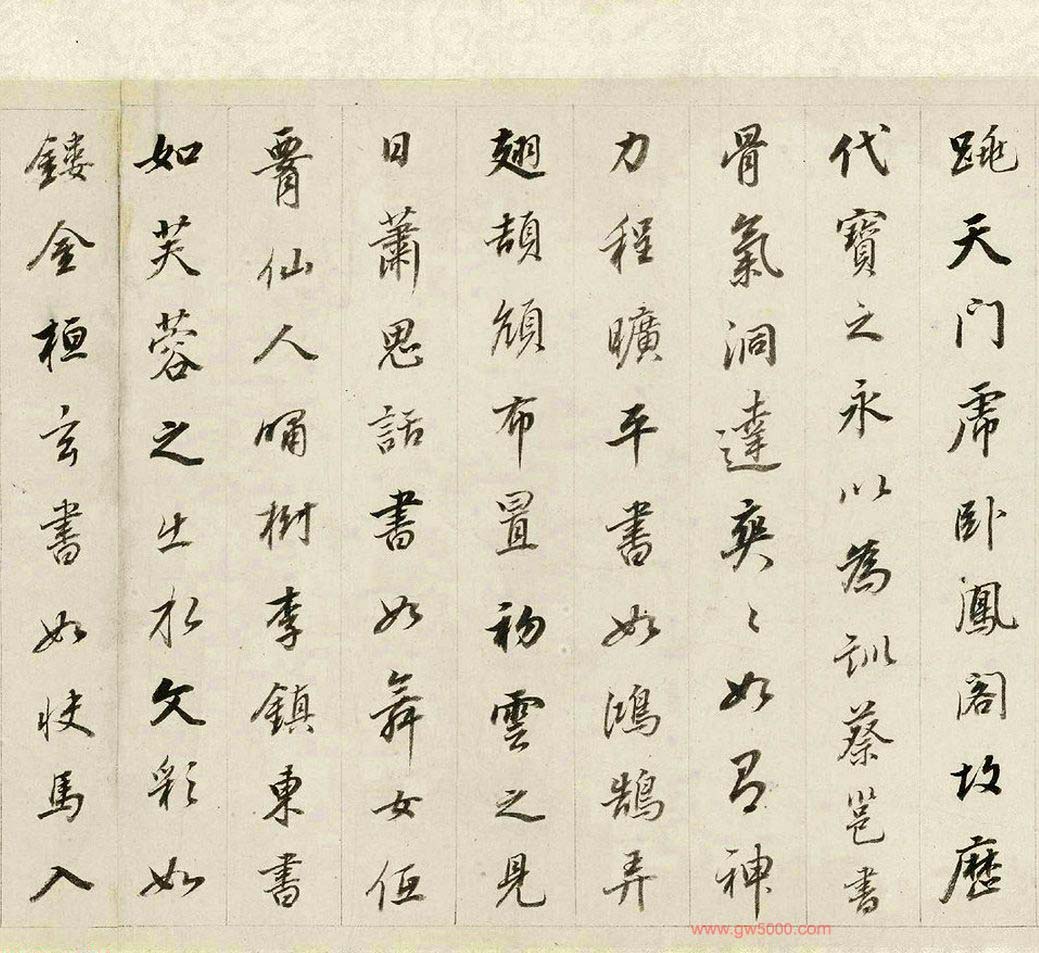 跳天门虎卧鳳閣故歷
代寶之永以為訓蔡邕書
骨氣洞達爽〻如有神
力程曠平書如鴻鵠弄
翅頡頏布置初雲之見
日蕭思話書如舞女低
腰仙人嘯樹李鎮東書
如芙蓉之出水文彩如
鏤金桓玄書如快馬入
www.gw5000.com